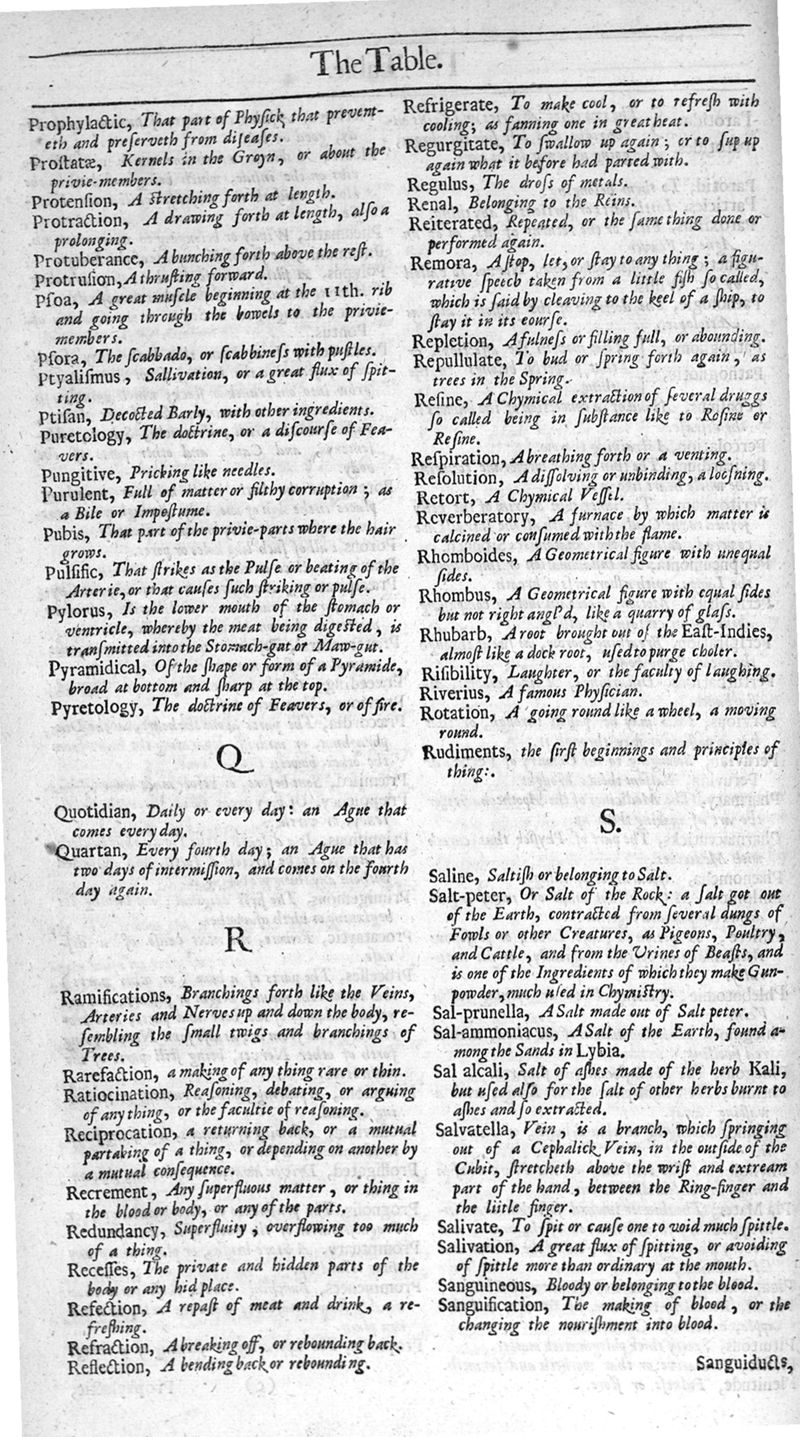 The Table.
Prophylactic, That part of Phyſick that prevent-
eth and preſerveth from diſeaſes.
Proſtatæ, Kernels in the Groyn, or about the
privie-members.
Protenſion, A ſtretching forth at length.
Protraction, A drawing forth at length, alſo a
prolonging.
Protuberance, A bunching forth above the reſt.
Protruſion, A thruſting forward.
Pſoa, A great muſcle beginning at the 11th. rib
and going through the bowels to the privie-
members.
Pſora, The ſcabbado, or ſcabbineſs with puſtles.
Ptyaliſmus, Sallivation, or a great flux of ſpit-
ting.
Ptiſan, Decocted Barly, with other ingredients.
Puretology, The doctrine, or a diſcourſe of Fea-
vers.
Pungitive, Pricking like needles.
Purulent, Full of matter or filthy corruption; as
a Bile or Impoſtume.
Pubis, That part of the privie-parts where the hair
grows.
Pulſific, That ſtrikes as the Pulſe or beating of the
Arterie, or that cauſes ſuch ſtriking or pulſe.
Pylorus, Is the lower mouth of the ſtomach or
ventricle, whereby the meat being digeſted, is
tranſmitted into the Stomach-gut or Maw-gut.
Pyramidical, Of the ſhape or form of a Pyramide,
broad at bottom and ſharp at the top.
Pyretology, The doctrine of Feavers, or of fire.
Q
Quotidian, Daily or every day: an Ague that
comes every day.
Quartan, Every fourth day; an Ague that has
two days of intermiſſion, and comes on the fourth
day again.
R
Ramifications, Branchings forth like the Veins,
Arteries and Nerves up and down the body, re-
ſembling the ſmall twigs and branchings of
Trees.
Rarefaction, a making of any thing rare or thin.
Ratiocination, Reaſoning, debating, or arguing
of any thing, or the facultie of reaſoning.
Reciprocation, a returning back, or a mutual
partaking of a thing, or depending on another by
a mutual conſequence.
Recrement, Any ſuperfluous matter, or thing in
the blood or body, or any of the parts.
Redundancy, Superfluity, overflowing too much
of a thing.
Receſſes, The private and hidden parts of the
body or any hid place.
Refection, A repaſt of meat and drink, a re-
freſhing.
Refraction, A breaking off, or rebounding back.
Reflection, A bending back or rebounding.
Refrigerate, To make cool, or to refreſh with
cooling; as fanning one in great heat.
Regurgitate, To ſwallow up again; or to ſup up
again what it before had parted with.
Regulus, The droſs of metals.
Renal, Belonging to the Reins.
Reiterated, Repeated, or the ſame thing done or
performed again.
Remora, A ſtop, let, or ſtay to any thing; a figu-
rative ſpeech taken from a little fiſh ſo called,
which is ſaid by cleaving to the keel of a ſhip, to
ſtay it in its eourſe.
Repletion, A fulneſs or filling full, or abounding.
Repullulate, To bud or ſpring forth again, as
trees in the Spring.
Reſine, A Chymical extraction of ſeveral druggs
ſo called being in ſubſtance like to Roſine or
Reſine.
Reſpiration, A breathing forth or a venting.
Reſolution, A diſſolving or unbinding, a looſning.
Retort, A Chymical Veſſel.
Reverberatory, A furnace by which matter is
calcined or conſumed with the flame.
Rhomboides, A Geometrical figure with unequal
ſides.
Rhombus, A Geometrical figure with equal ſides
but not right angl'd, like a quarry of glaſs.
Rhubarb, A root brought out of the Eaſt-Indies,
almoſt like a dock root, uſed to purge choler.
Riſibility, Laughter, or the faculty of laughing.
Riverius, A famous Phyſician.
Rotation, A going round like a wheel, a moving
round.
Rudiments, the firſt beginnings and principles of
thing:.
S.
Saline, Saltiſh or belonging to Salt.
Salt-peter, Or Salt of the Rock: a ſalt got out
of the Earth, contracted from ſeveral dungs of
Fowls or other Creatures, as Pigeons, Poultry,
and Cattle, and from the Urines of Beaſts, and
is one of the Ingredients of which they make Gun-
powder, much uſed in Chymiſtry.
Sal-prunella, A Salt made out of Salt peter.
Sal-ammoniacus, A Salt of the Earth, found a-
mong the Sands in Lybia.
Sal alcali, Salt of aſhes made of the herb Kali,
but uſed alſo for the ſalt of other herbs burnt to
aſhes and ſo extracted.
Salvatella, Vein, is a branch, which ſpringing
out of a Cephalick Vein, in the outſide of the
Cubit, ſtretcheth above the wriſt and extream
part of the hand, between the Ring-finger and
the liitle finger.
Salivate, To ſpit or cauſe one to void much ſpittle.
Salivation, A great flux of ſpitting, or avoiding
of ſpittle more than ordinary at the mouth.
Sanguineous, Bloody or belonging to the blood.
Sanguification, The making of blood, or the
changing the nouriſhment into blood.
Sanguiducts,